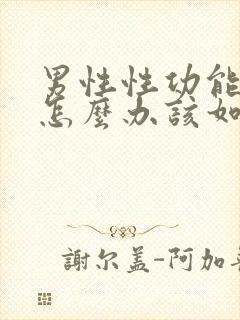 男性性功能
怎麼办該如
謝尔盖-阿加